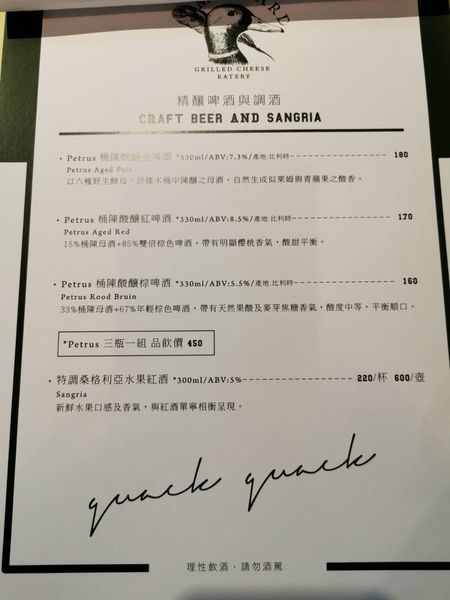 GRILLED CHEESE
EATERY
精釀啤酒與調酒
CRAFT BEER AND SANGRIA
• Petrus 桶陳酸釀金啤酒 *330ml/ABV:7.3%/產地:比利時 180
Petrus Aged Pale
以六種野生酵母，於橡木桶中陳釀之母酒，自然生成似萊姆與青蘋果之酸香。
• Petrus 桶陳酸釀紅啤酒 *330ml/ABV:8.5%/產地:比利時 170
Petrus Aged Red
15%桶陳母酒+85%雙倍棕色啤酒，帶有明顯櫻桃香氣，酸甜平衡。
• Petrus 桶陳酸釀棕啤酒 *330ml/ABV:5.5%/產地:比利時 160
Petrus Rood Bruin
33%桶陳母酒+67%年輕棕色啤酒，帶有天然果酸及麥芽焦糖香氣，酸度中等，平衡順口。
*Petrus 三瓶一組 品飲價 450
• 特調桑格利亞水果紅酒 *300ml/ABV:5% 220/杯 600/壺
Sangria
新鮮水果口感及香氣，與紅酒單寧相衡呈現。
quack quack
理性飲酒，請勿酒駕